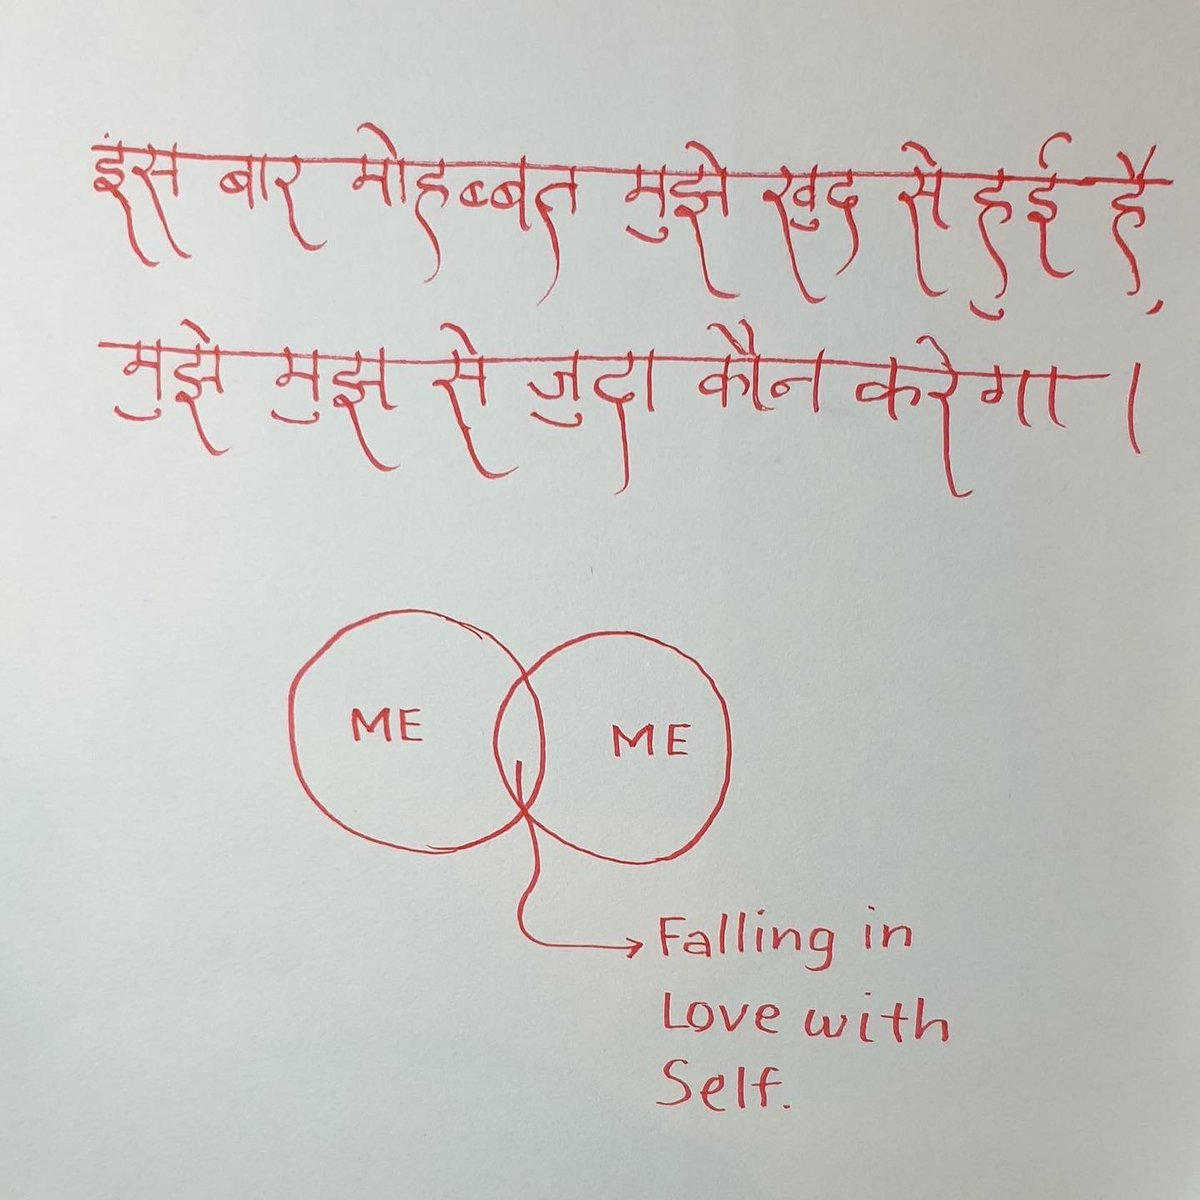 इस बार मोहब्बत मुझे खुद से हुई है,
मुझे मुझ से जुदा कौन करेगा।
ME
ME
Falling in
Love with
Self.